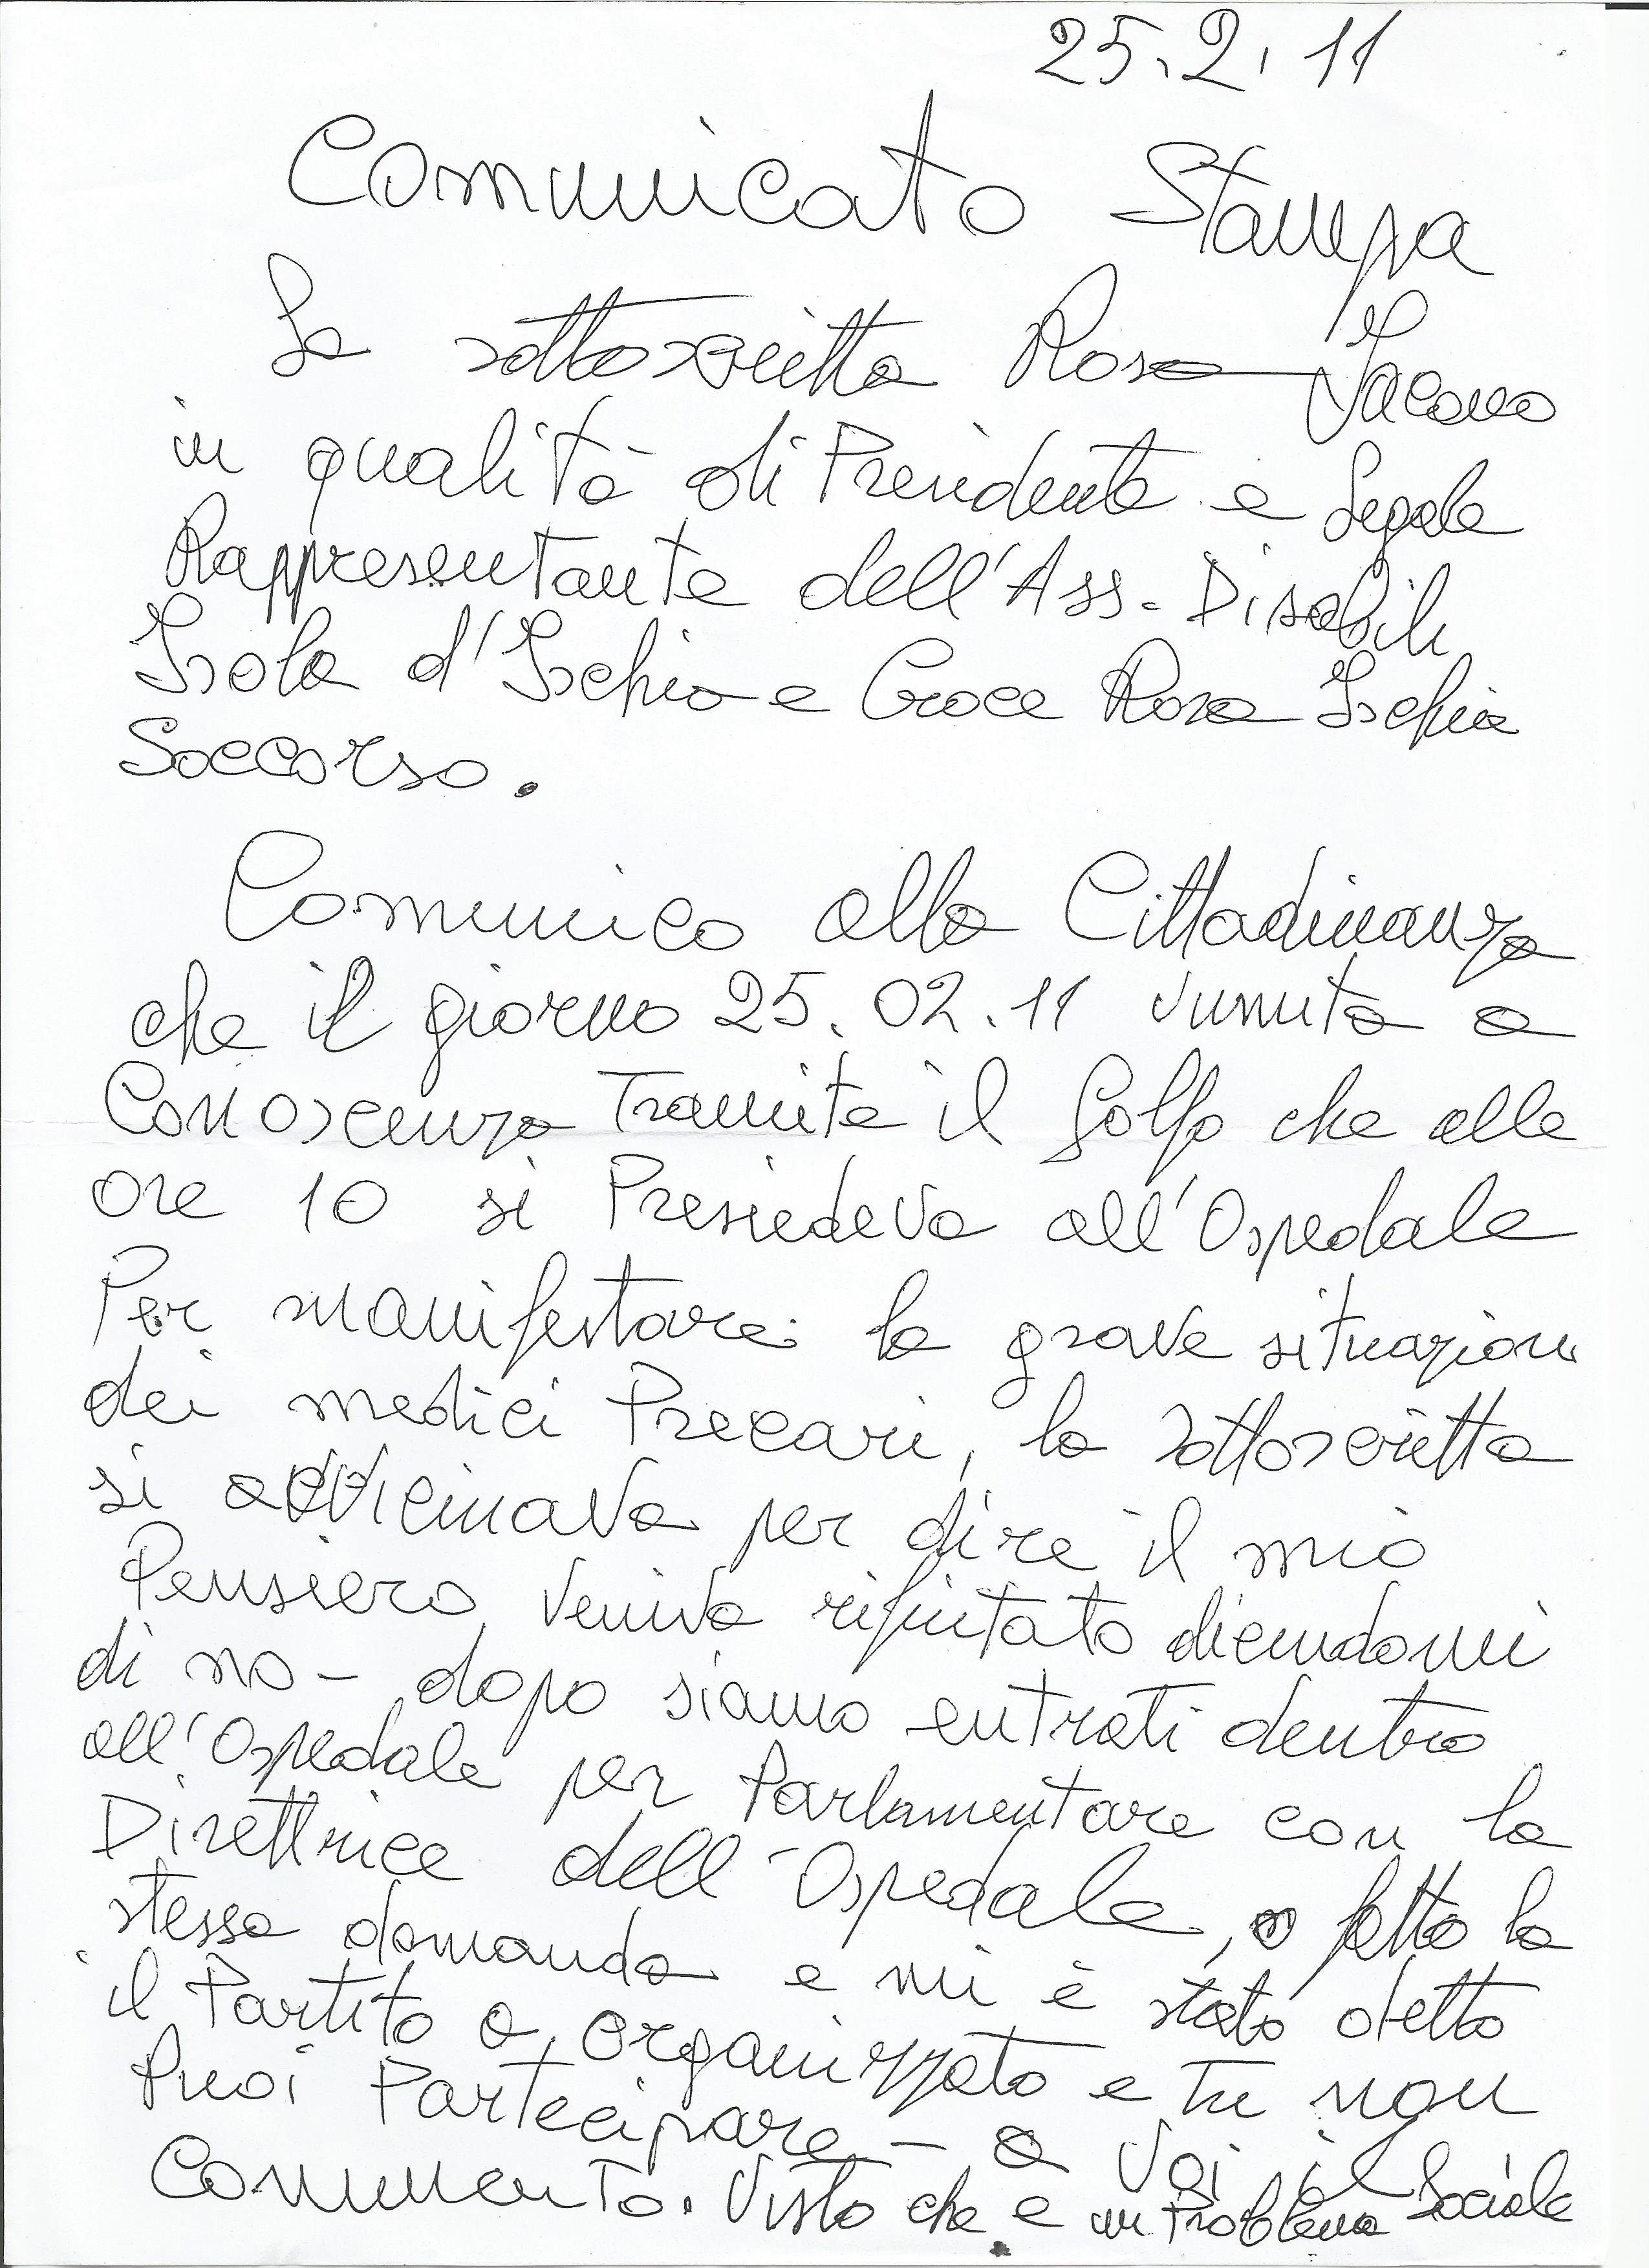 25.2.11
Comunicato Stampa
La sottoscritta Rosa Iacono
in qualità di Presidente e Legale
Rappresentante dell'Ass. Disabili
Isola d'Ischia e Croce Rosa Ischia
Soccorso.
Comunico alla Cittadinanza
che il giorno 25.02.11 vunuta a
Conoscenza Tramite il Golfo che alle
ore 10 si Presiedeva all'Ospedale
Per manifestare la grave situazione
dei medici Precari, la sottoscritta
si avvicinava per dire il mio
Pensiero veniva rifiutato dicendomi
di no - dopo siamo entrati dentro
all'Ospedale per Parlamentare con la
Direttrice dell'Ospedale, o fatto la
stessa domanda e mi è stato detto
il Partito a organizzato e tu non
Puoi Partecipare - a voi il
Commento. Visto che e un Problema Sociale